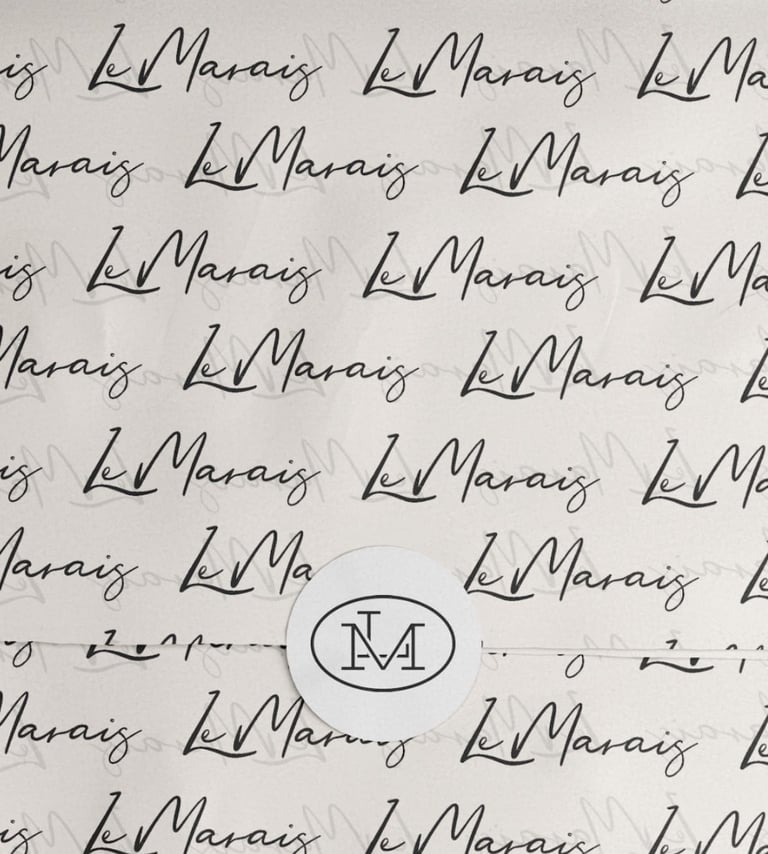 is Le Marais Le Marais Le Ma
Marais Le Marais Le Marais Le
is Le Marais Le Marais Le Ma
Marais Le Marais Le Marais Le
is Le Marais Le Marais Le Ma
Marais Le Ma Le Marais Le
LM
Marais Le Marais Le Marais Le
is Le Marais Le Marais Le Ma